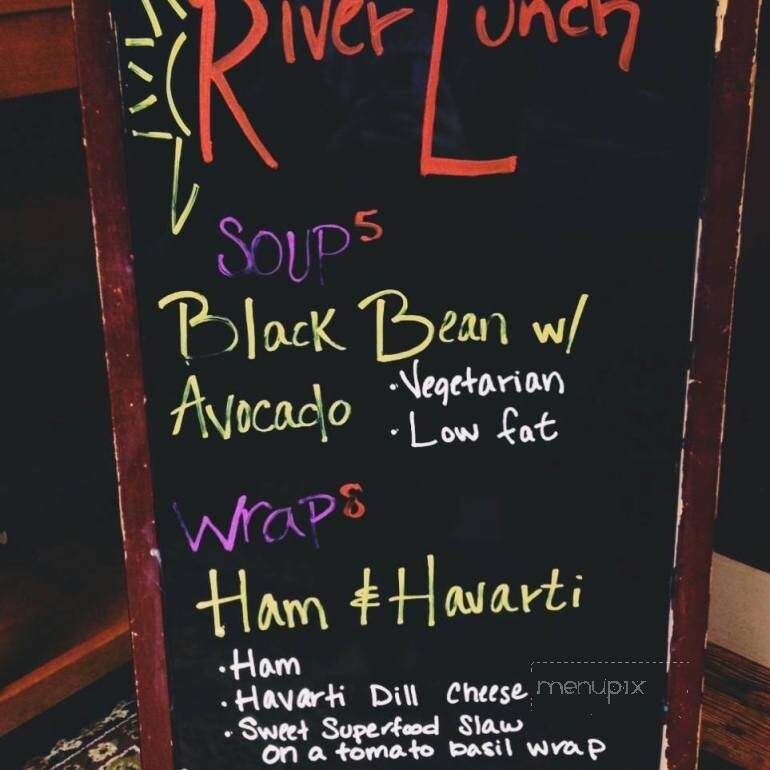 River Lunch
Soup 5
Black Bean w/
Avocado
• Vegetarian
• Low fat
Wrap 8
Ham & Havarti
• Ham
• Havarti Dill Cheese
• Sweet Superfood Slaw
on a tomato basil wrap
menupix